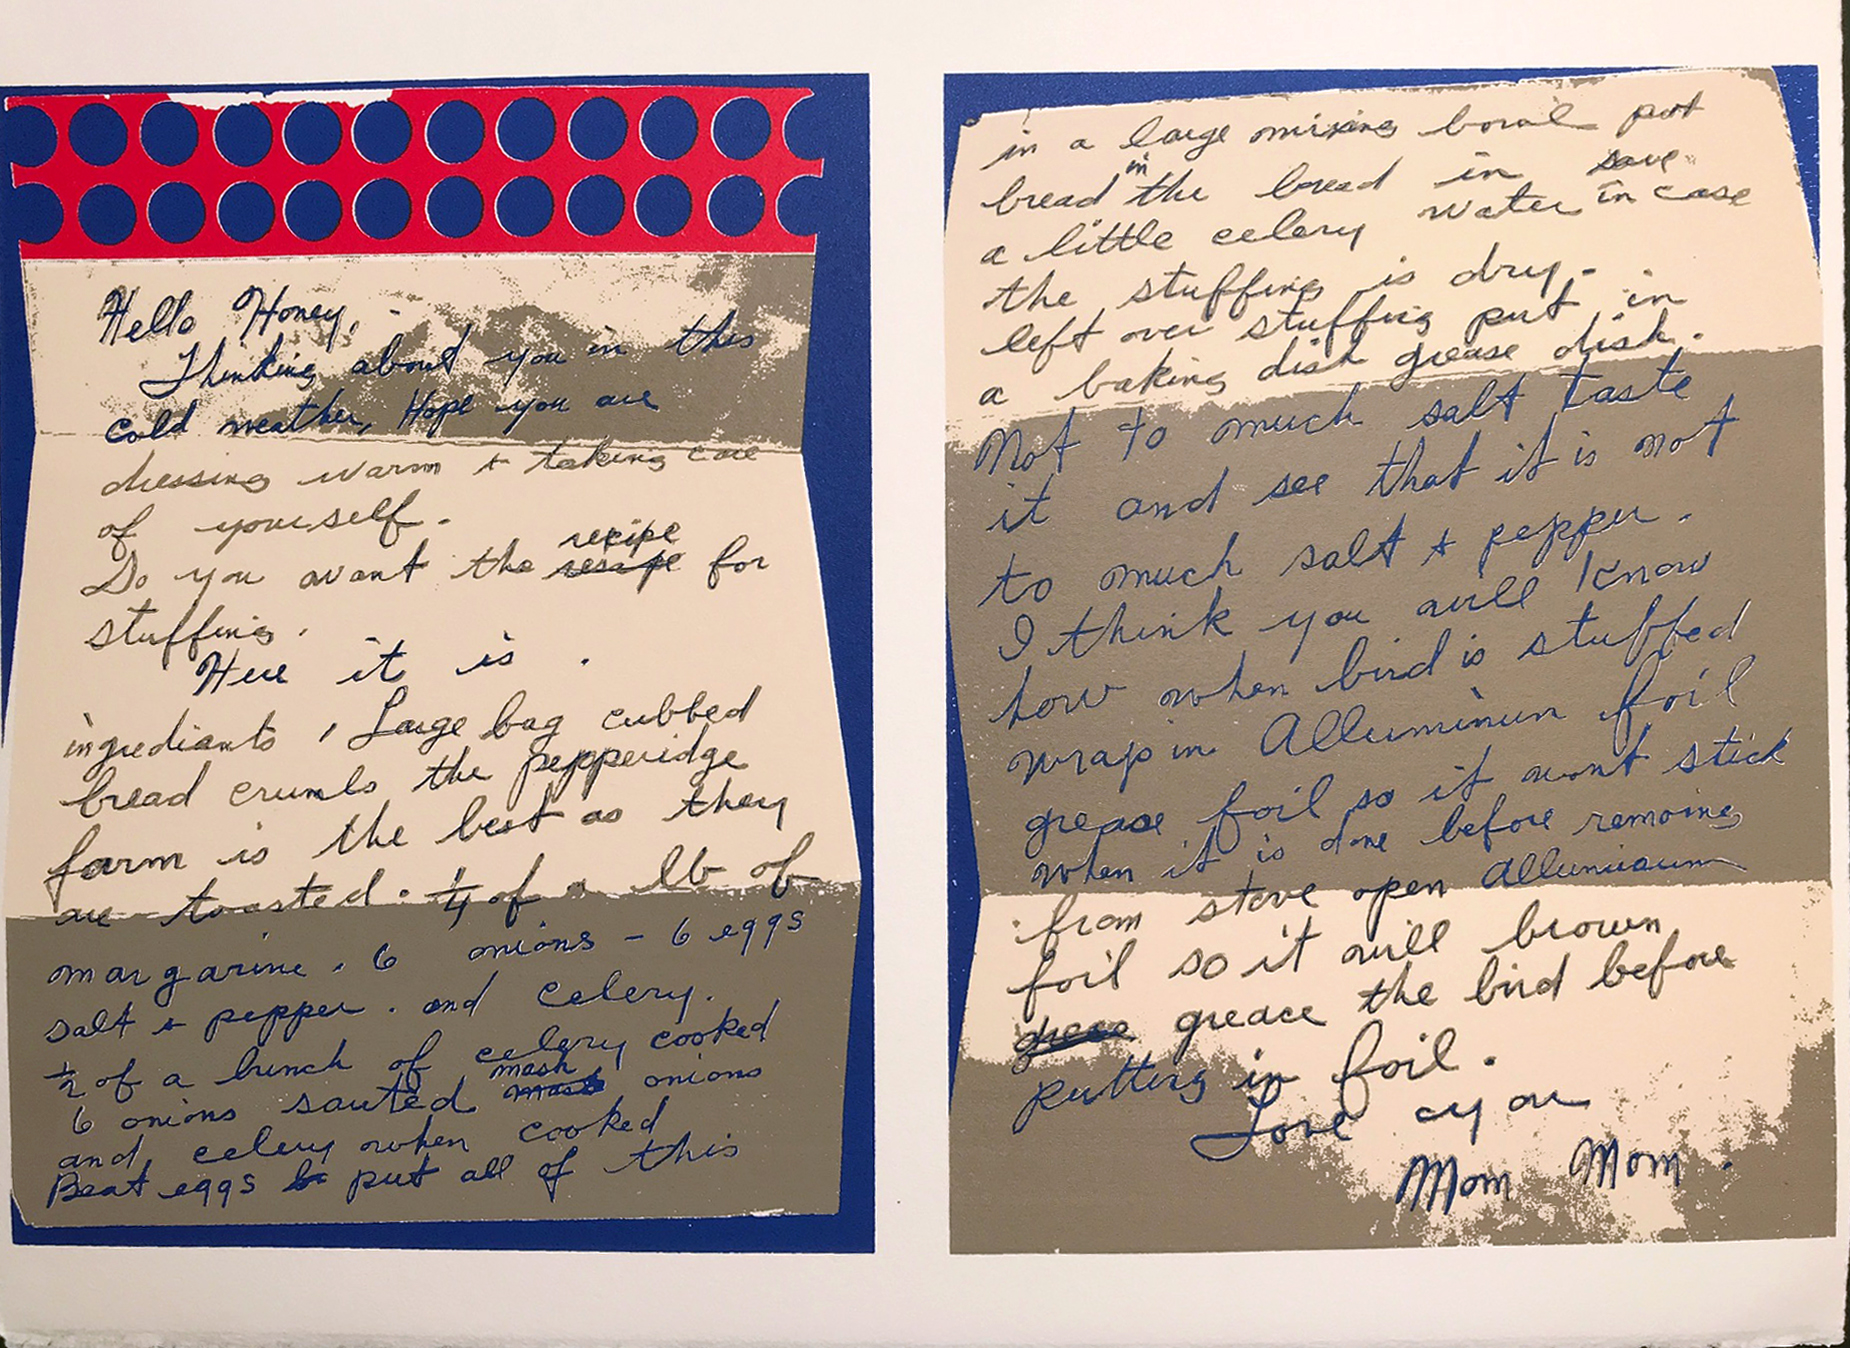 Hello Honey,
Thinking about you in this
cold weather, Hope you are
dressing warm + taking care
of yourself.
Do you want the recipe for
stuffing.
Here it is.
ingrediants, Large bag cubbed
bread crumbs the pepperidge
farm is the best as they
are toasted. 1/4 of a lb of
margarine. 6 onions - 6 eggs
salt + pepper. and celery.
1/2 of a bunch of celery cooked
6 onions sauted mash onions
and celery when cooked
Beat eggs put all of this
in a large mixing bowl put
bread in the bread in save
a little celery water in case
the stuffing is dry.
left over stuffing put in
a baking dish grease dish.
Not to much salt taste
it and see that it is not
to much salt + pepper.
I think you will know
how when bird is stubbed
wrap in Alluminun foil
grease foil so it wont stick
when it is done before remoing
from stove open Alluminum
foil so it will brown
grease the bird before
putting in foil.
Love you
Mom Mom.